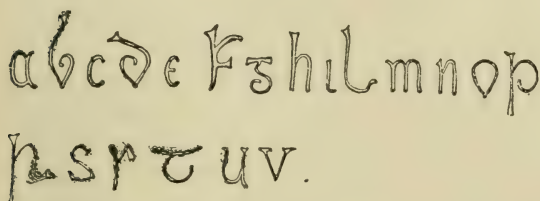 a b c d e F g h i L m n o p
R s r t u v.